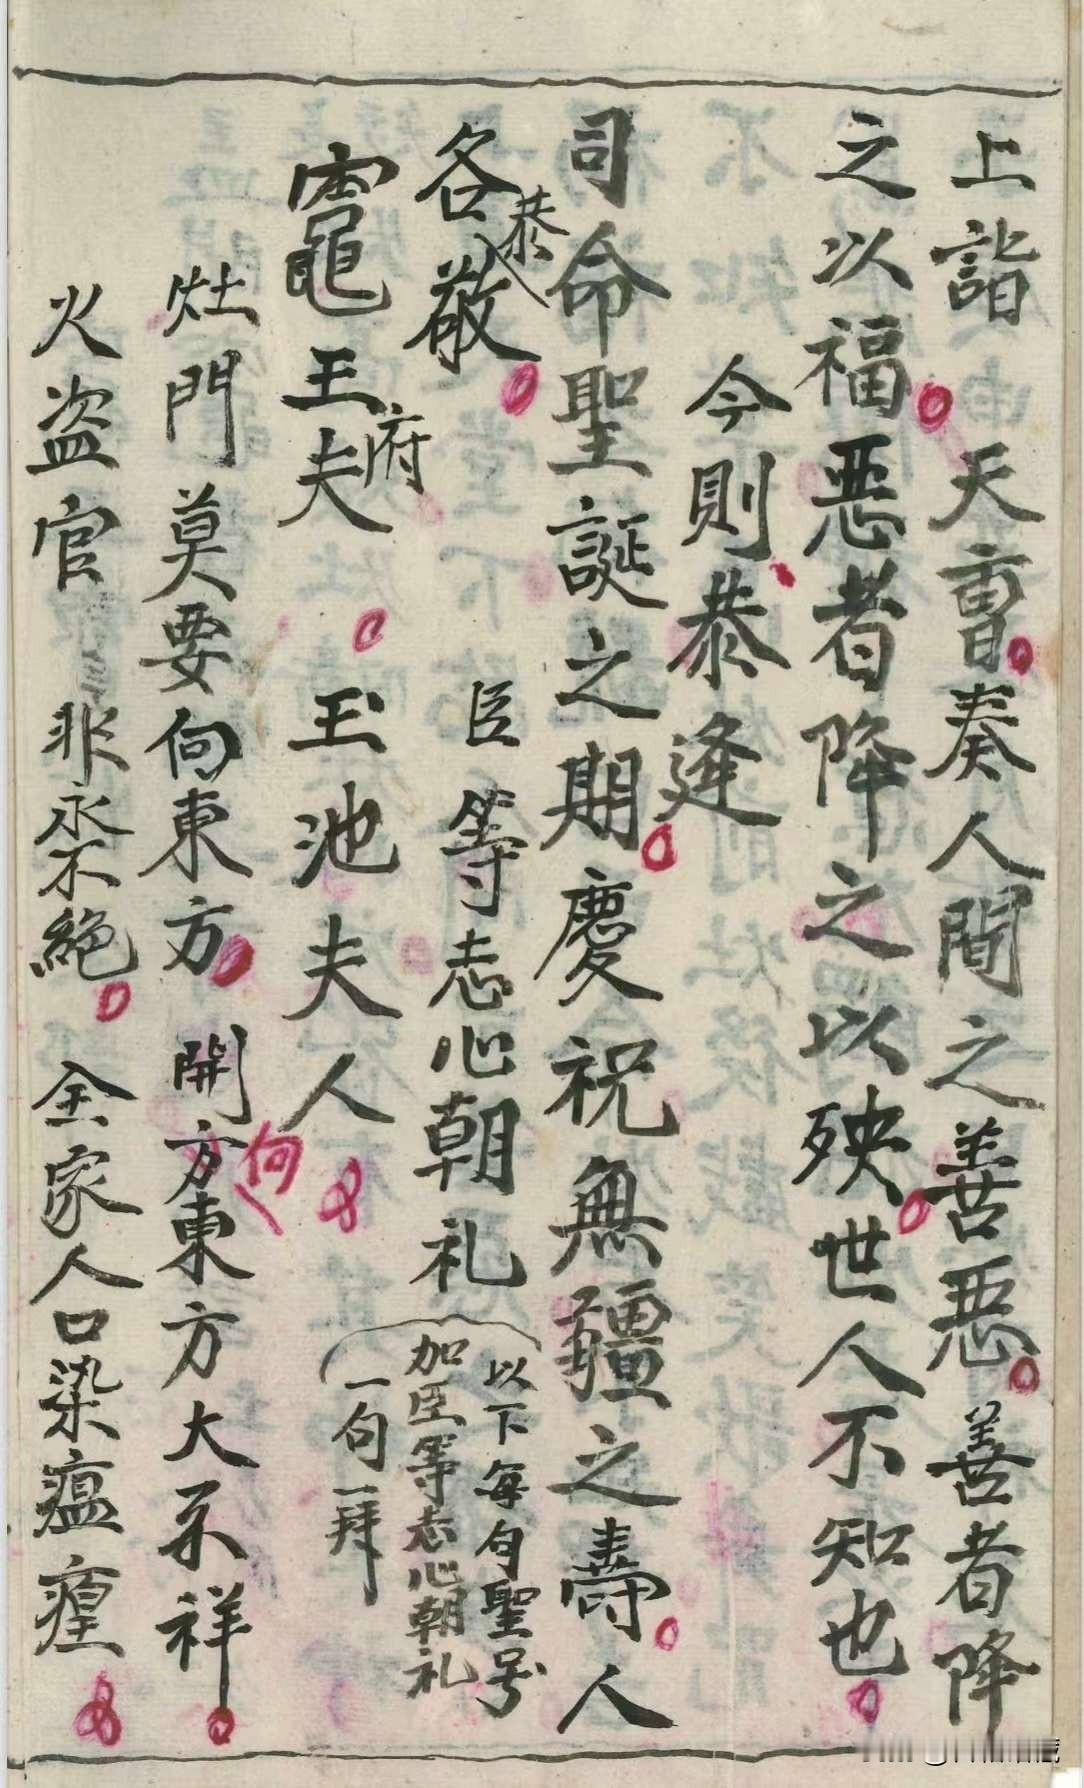 上詣　天曺奏人間之善惡善者降
之以福惡者降之以殃世人不知也
今則恭逢
司命聖誕之期慶祝無疆之壽人
各恭敬　臣等志心朝礼
以下每句聖号
加臣等志心朝礼
一句一拜
竈王府夫　玉池夫人
灶門莫要向東方　開方向東方大不祥
火盗官非永不絕　全家人口染瘟瘟